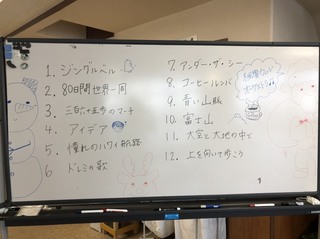 1. ジングルベル
2. 80日間世界一周
3. 三百六十五歩のマーチ
4. アイデア
5. 憧れのハワイ航路
6 ドレミの歌
7. アンダー・ザ・シー
8. コーヒールンバ
9. 青い山脈
10. 富士山
11. 大空と大地の中で
12. 上を向いて歩こう